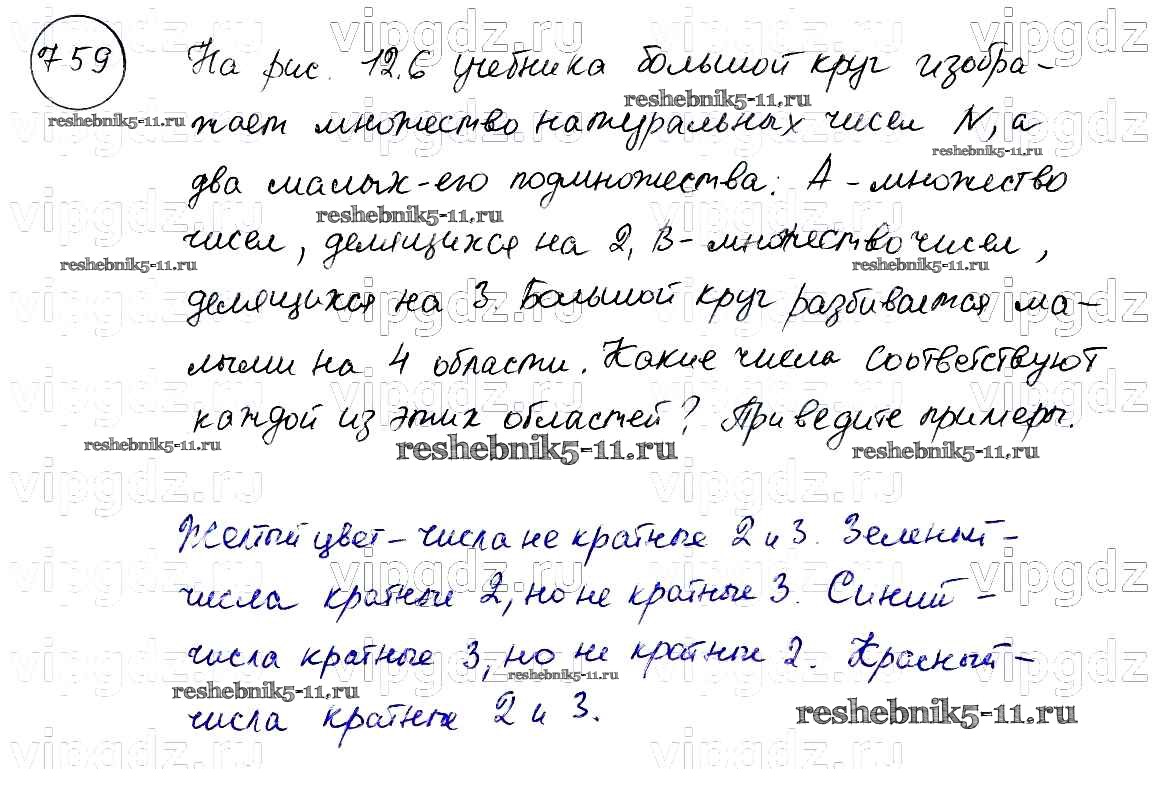 759
На рис. 12.6 учебника большой круг изобра-
жает множество натуральных чисел N, а
два малых - его подмножества: А - множество
чисел, делящихся на 2, В - множество чисел,
делящихся на 3. Большой круг разбивается ма-
лыми на 4 области. Какие числа соответствуют
каждой из этих областей? Приведите примеры.
Желтый цвет - числа не кратные 2 и 3. Зеленый -
числа кратные 2, но не кратные 3. Синий -
числа кратные 3, но не кратные 2. Красный -
числа кратные 2 и 3.
vipgdz.ru
reshebnik5-11.ru